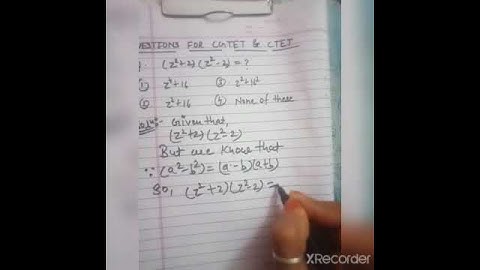 ESTIONS FOR CGTET & CTET
(z²+2)(z²-2)=?
① z⁴+16 ③ z²+16²
② z²+16 ④ None of these
Given that,
(z²+2)(z²-2)
But we know that
∵ (a²-b²)=(a-b)(a+b)
So, (z²+2)(z²-2)=
XRecorder